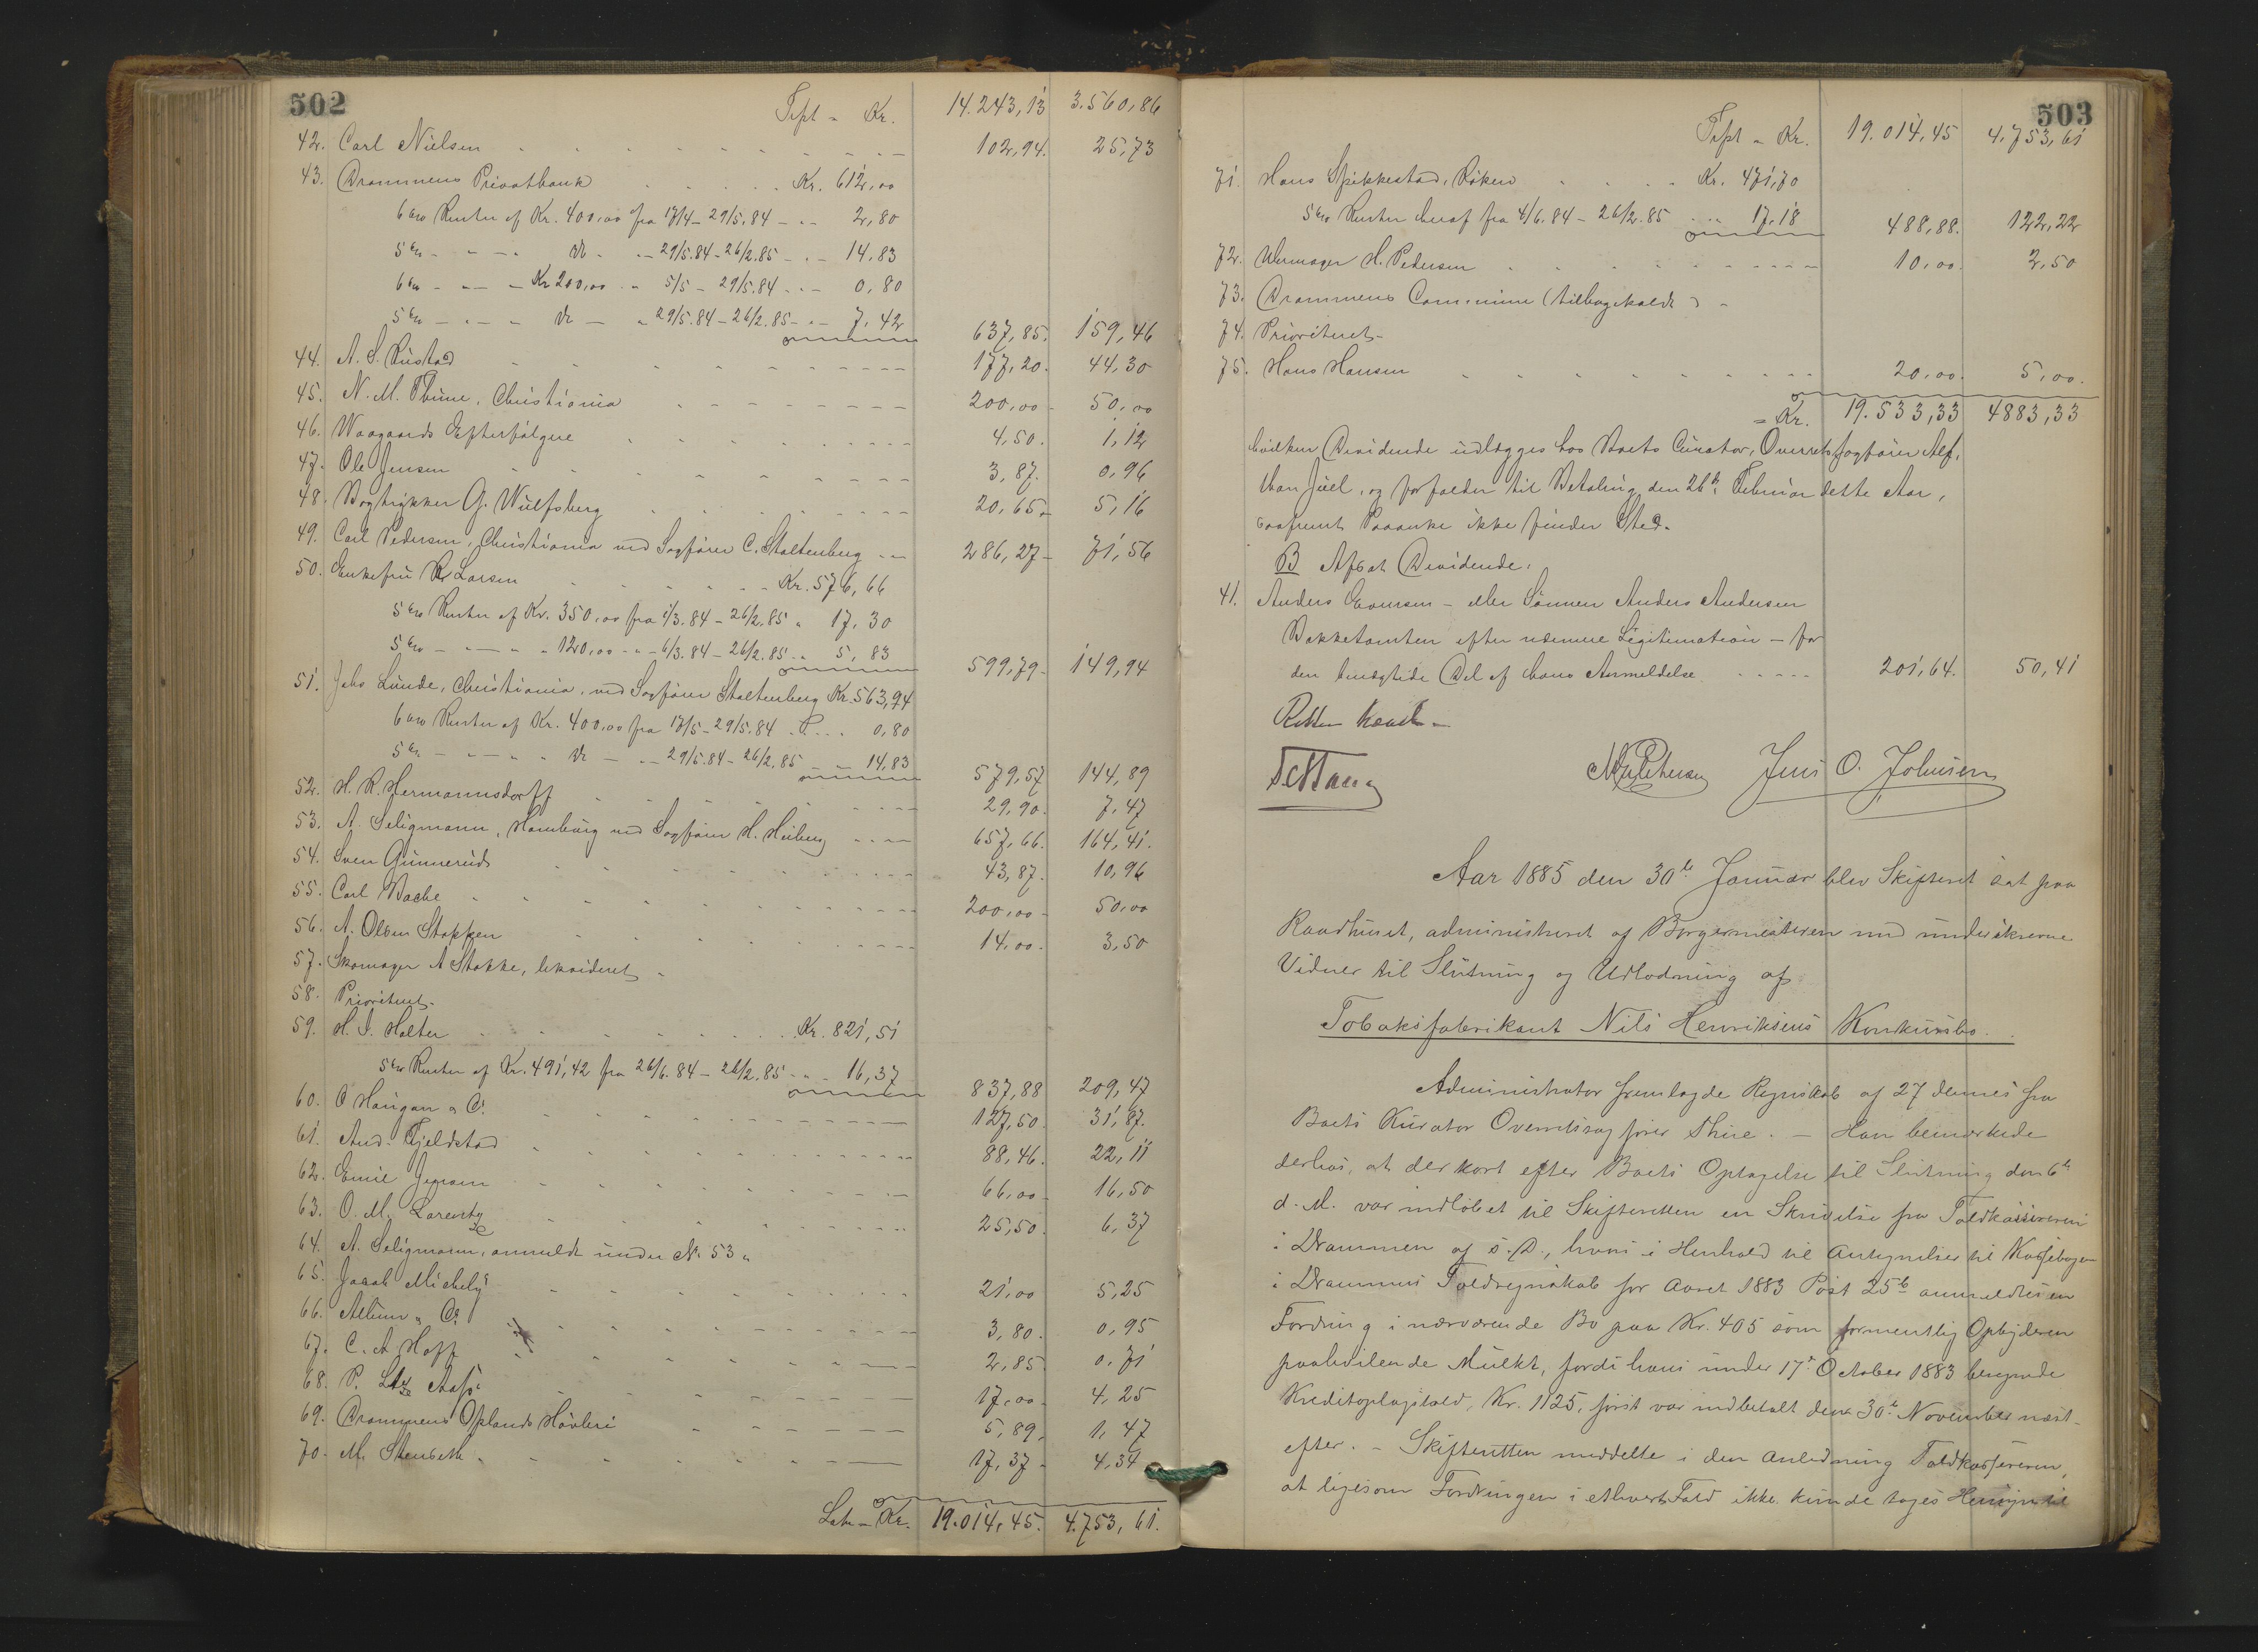 502
Trpt - Kr. 14.243,13 3.560,86
42. Carl Nielsen 102,94. 25,73
43. Drammens Privatbank Kr. 612,00
6% Renter af Kr. 400,00 fra 17/4 - 29/5.84 - 2,80
5% - - - Do - - 29/5.84 - 26/2.85 - - 14,83
6% - - - Kr 200,00 - 5/5 - 29/5.84 - - 0,80
5% - - - Do - - 29/5.84 - 26/2.85 - - 7,42 637,85. 159,46
44. A. S. Rustad 177,20. 44,30
45. N. M. Thune, Christiania 200,00 - 50,00
46. Waagaards Efterfølgere 4,50. 1,12
47. Ole Jensen 3,87. 0,96
48. Bogtrykker G. Wulfsberg 20,65 - 5,16
49. Carl Pedersen, Christiania ved Sagfører C. Stoltenberg 286,27 - 71,56
50. Enkefru Larsen Kr. 576,66
5% Renter af Kr. 350,00 fra 1/3.84 - 26/2.85 " 17,30
5% - - - " 120,00 - - 6/3.84 - 26/2.85 - 5,83 599,79 - 149,94
51. Johs Lunde, Christiania, ved Sagfører Stoltenberg Kr. 563,94
6% Renter af Kr. 400,00 fra 17/5 - 29/5.84 0,80
5% - - - Do - - 29/5.84 - 26/2.85 - - 14,83 579,57 144,89
52. H. R. Hermannsdorff 29,90. 7,47
53. A. Seligmann, Hamburg ved Sagfører H. Heiberg 657,66. 164,41.
54. Sven Gunnerud 43,87. 10,96
55. Carl Bache 200,00 - 50,00
56. A. Olsen Stoppen 14,00 - 3,50
57. Skomager A Stokke, likvideret -
58. Prioriteret -
59. H. I. Holter Kr. 821,51
5% Renter af Kr. 491,42 fra 26/6.84 - 26/2.85 - - 16,37 837,88 209,47
60. O Haugan & Co. 127,50. 31,87.
61. And. Fjeldstad 88,46. 22,11
62. Emil Jensen 66,00 - 16,50
63. O. M. Lorentz 25,50. 6,37
64. A. Seligmann, anmeldt under No 53.
65. Jacob Michely 21,00 5,25
66. Album & Co. 3,80. 0,95
67. C. A. Hoff 2,85. 0,71
68. P. Ltz Aass 17,00. 4,25
69. Drammens Oplands Høvleri 5,89. 1,47
70. M. Stenseth 17,37 - 4,34
Lat. - Kr. 19.014,45. 4.753,61.
503
Trpt - Kr. 19.014,45 4.753,61
71. Hans Spikkestad, Røken Kr. 471,70
5% Renter heraf fra 4/6.84 - 26/2.85 17,18 488,88. 122,22
72. Uhrmager H. Pedersen 10,00. 2,50
73. Drammens Commune (tilbagekaldt) -
74. Prioriteret -
75. Hans Hansen 20,00. 5,00.
= Kr. 19.533,33 4883,33
hvilken Dividende udlægges hos Boets Curator, Overretssagfører Alf.
than Juel, og forfalder til Betaling den 26de Februar dette Aar,
saafremt Paaanke ikke finder Sted.
B Afsat Dividende.
41. Anders Evensen - eller Sønnen Anders Andersen
Bakketomten efter nærmere Legitimation - for
den benægtede Del af hans Anmeldelse 201,64. 50,41
Retten hævet -
Jens O. Johnsen
Aar 1885 den 30te Januar blev Skifteret sat paa
Raadhuset, administreret af Borgermesteren med underskrevne
Vidner til Slutning og Udlodning af
Tobaksfabrikant Nils Henriksens Konkursbo.
Administrator fremlagde Regnskab af 27 dennes fra
Boets Kurator Overretssagfører Thue. - Han bemærkede
derhos, at der kort efter Boets Optagelse til Slutning den 6te
d. M. var indløbet til Skifteretten en Skrivelse fra Toldkassereren
i Drammen af s. D., hvori i Henhold til Antegnelser til Kassebogen
i Drammens Toldregnskab for Aaret 1883 Post 25b anmeldtes en
Fordring i nærværende Bo paa Kr. 405 som formentlig Opbyderen
paahvilende Mulkt, fordi hans under 17de October 1883 beregnede
Kreditoplagstold, Kr. 1125, først var indbetalt den 30te November næst-
efter. - Skifteretten meddelte i den Anledning Toldkassereren,
at ligesom Fordringen i ethvert Fald ikke kunde tages Hensyn til